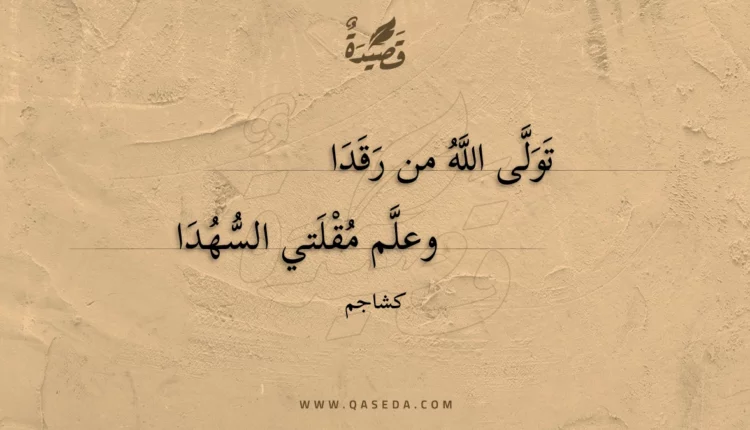 قَصِيدَةٌ
تَوَلَّى اللَّهُ من رَقَدَا
وعلَّم مُقْلَتي السُّهُدَا
كشاجم
WWW.QASEDA.COM